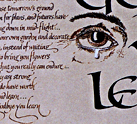 tomorrow's ground
for plans, and futures have
down in mid-flight...
own garden and decorate
instead of waiting
bring you flowers
you really can endure...
are strong
do have worth
and learn...
goodbye you learn
LE